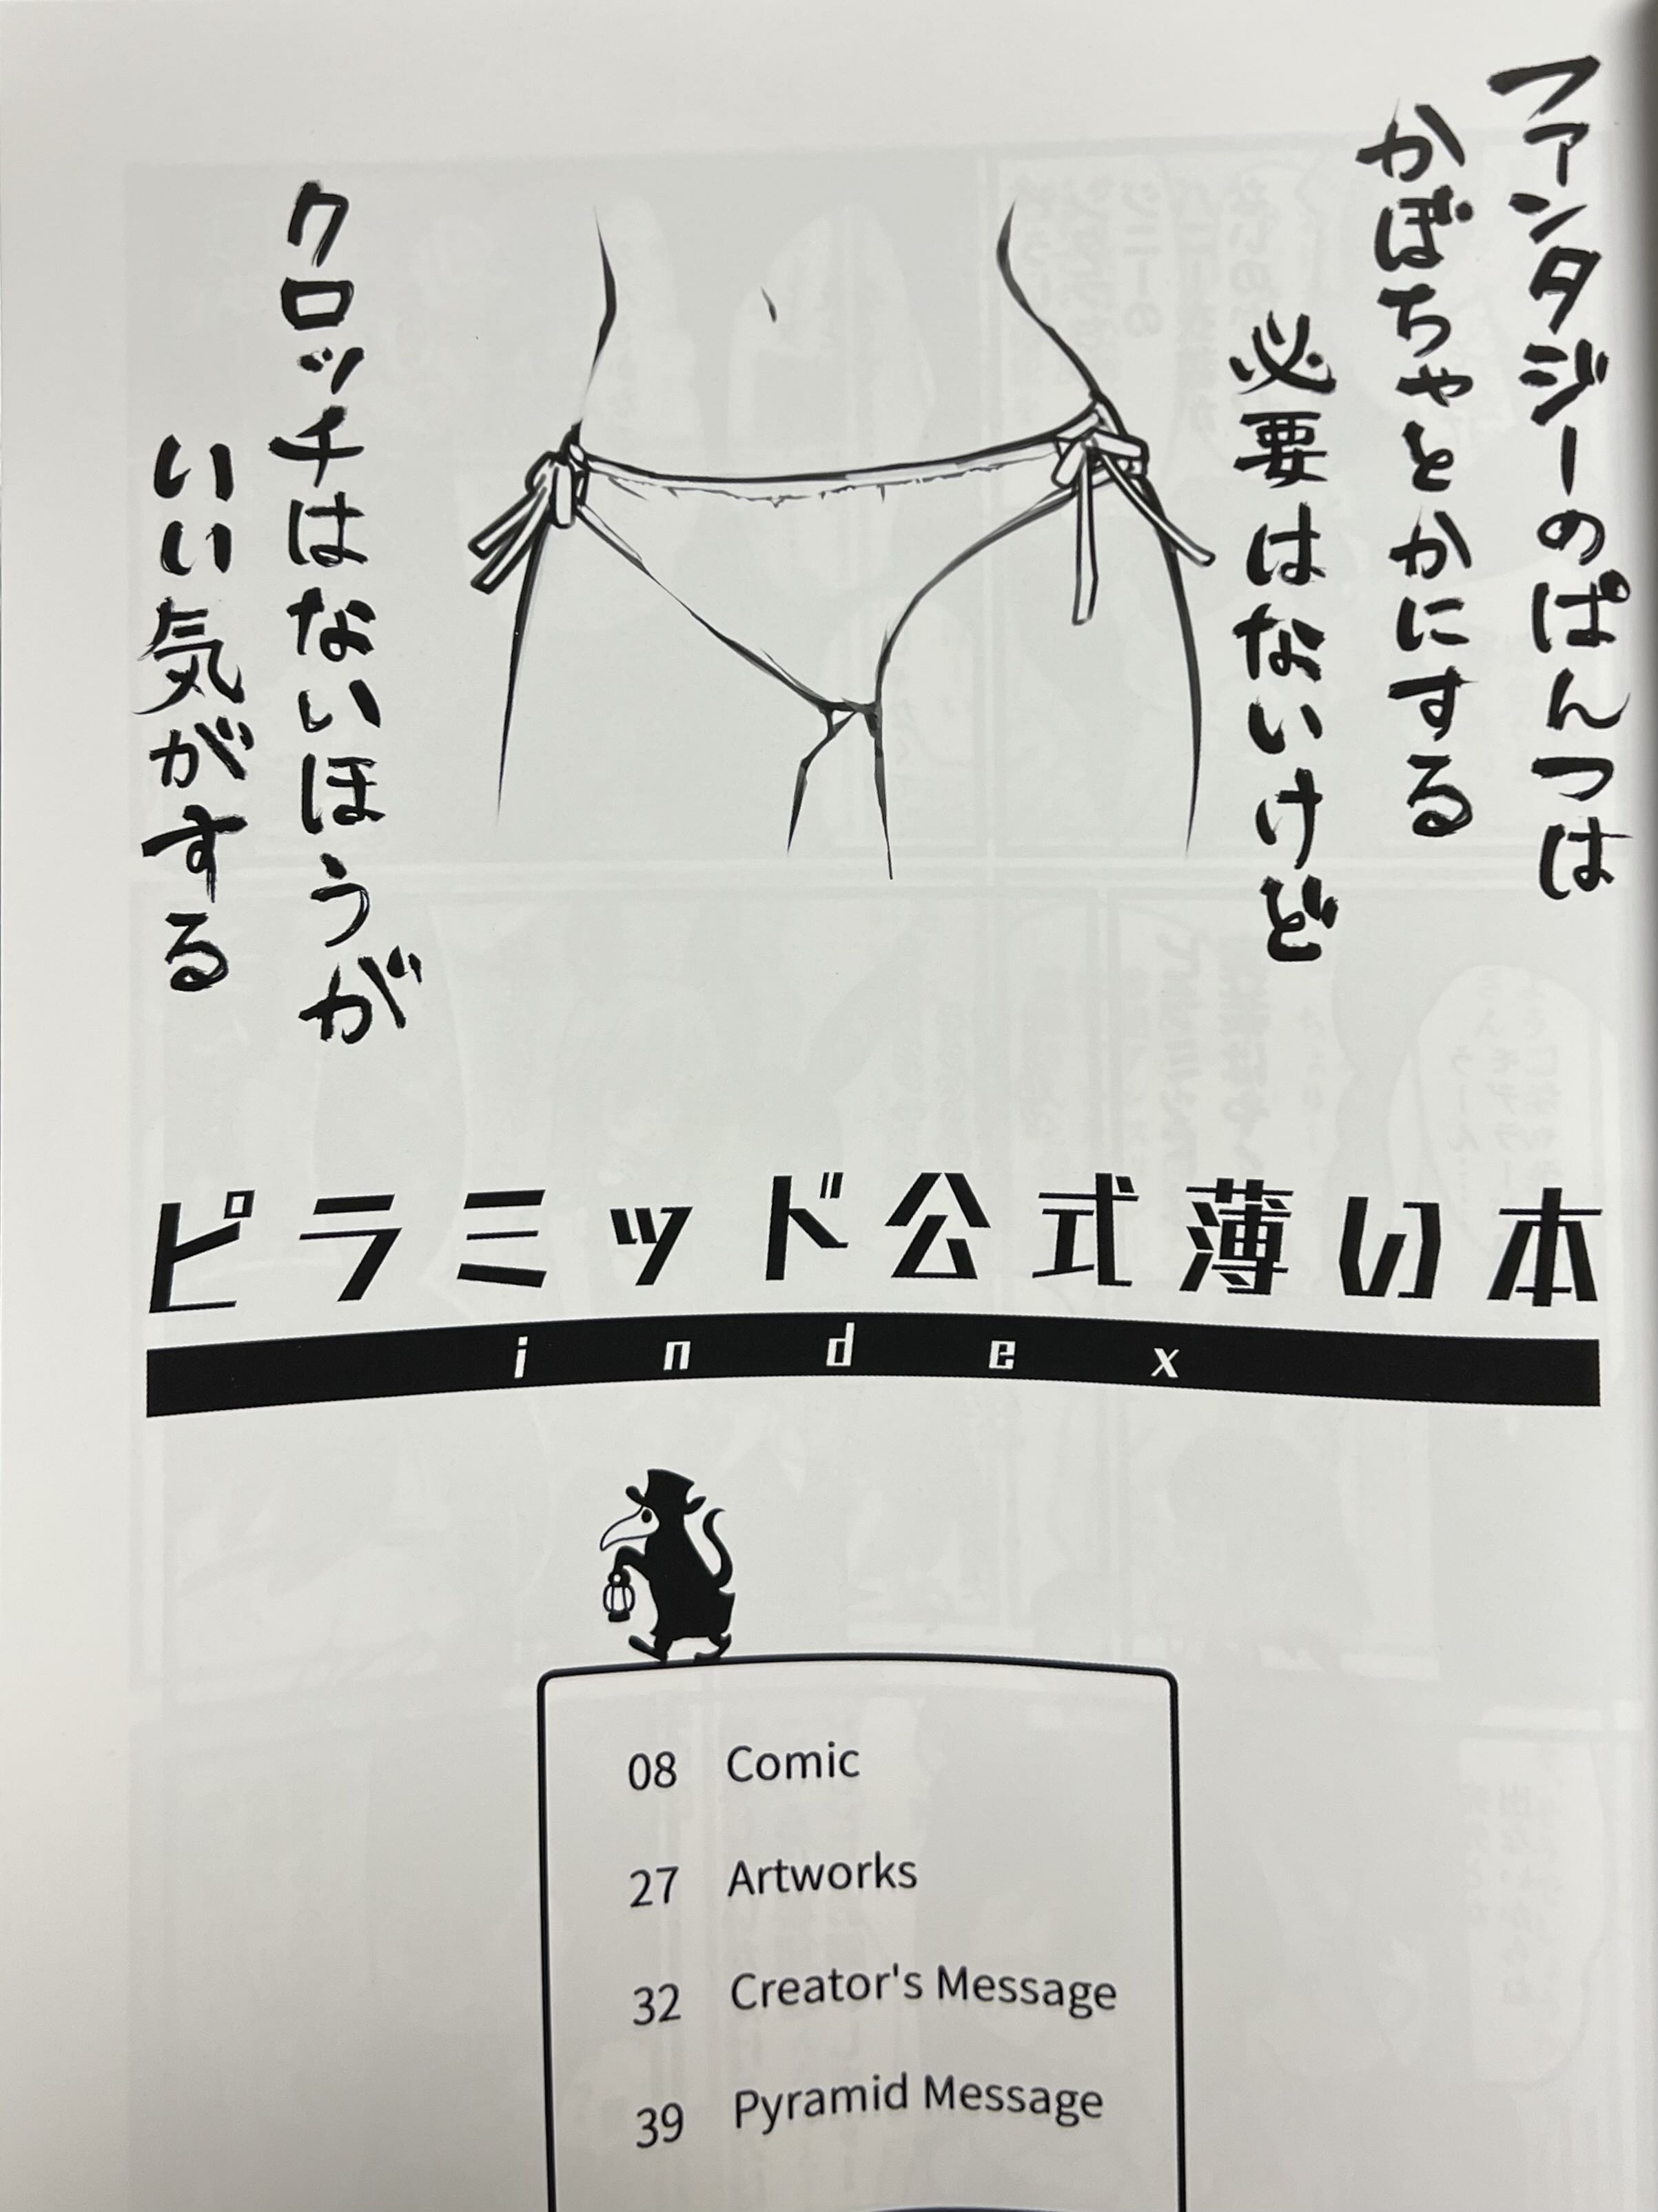 ファンタジーのぱんつは
かぼちゃとかにする
必要はないけど
クロッチはないほうが
いい気がする
ピラミッド公式薄い本
index
08 Comic
27 Artworks
32 Creator's Message
39 Pyramid Message